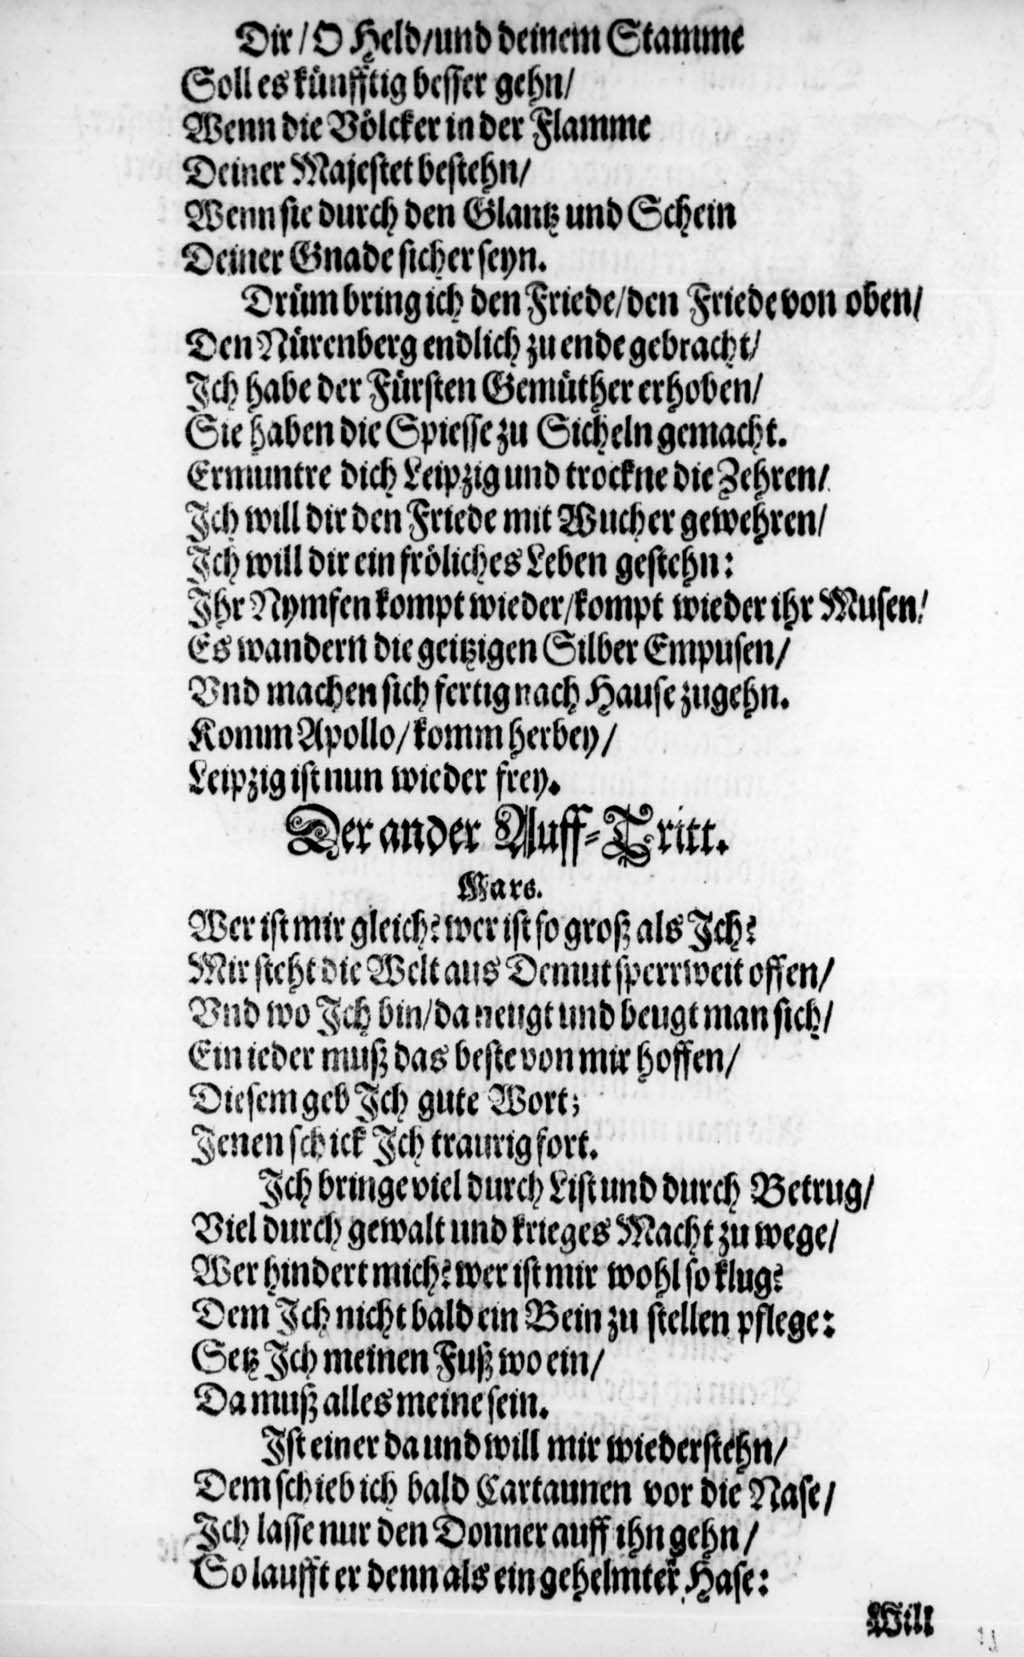 Dir / O Held / und deinem Stamme
Soll es künfftig besser gehn /
Wenn die Völcker in der Flamme
Deiner Majestet bestehn /
Wenn sie durch den Glantz und Schein
Deiner Gnade sicher seyn.
Drüm bring ich den Friede / den Friede von oben /
Den Nürenberg endlich zu ende gebracht /
Ich habe der Fürsten Gemüther erhoben /
Sie haben die Spiesse zu Sicheln gemacht.
Ermuntre dich Leipzig und trockne die Zehren /
Ich will dir den Friede mit Wucher gewehren /
Ich will dir ein fröliches Leben gestehn:
Ihr Nymfen kompt wieder / kompt wieder ihr Musen!
Es wandern die geitzigen Silber Empusen /
Vnd machen sich fertig nach Hause zugehn.
Komm Apollo / komm herbey /
Leipzig ist nun wieder frey.
Der ander Auff-Tritt.
Mars.
Wer ist mir gleich? wer ist so groß als Ich?
Mir steht die Welt aus Demut sperrweit offen /
Vnd wo Ich bin / da neugt und beugt man sich /
Ein ieder muß das beste von mir hoffen /
Diesem geb Ich gute Wort;
Jenen schick Ich traurig fort.
Ich bringe viel durch List und durch Betrug /
Viel durch gewalt und krieges Macht zu wege /
Wer hindert mich? wer ist mir wohl so klug?
Dem Ich nicht bald ein Bein zu stellen pflege:
Setz Ich meinen Fuß wo ein /
Da muß alles meine sein.
Ist einer da und will mir wiederstehn /
Dem schieb ich bald Cartaunen vor die Nase /
Ich lasse nur den Donner auff ihn gehn /
So laufft er denn als ein gehelmter Hase:
Will